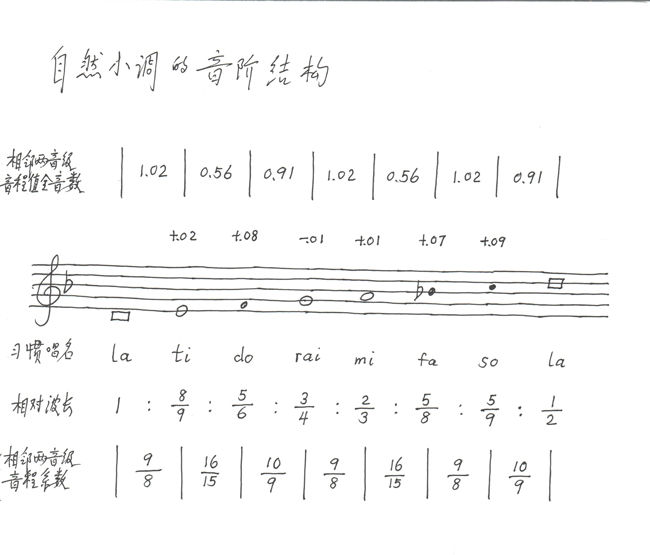 自然小调的音阶结构
相邻两音级
音程值全音数 | 1.02 | 0.56 | 0.91 | 1.02 | 0.56 | 1.02 | 0.91 |
+.02 +.08 -.01 +.01 +.07 +.09
习惯唱名 la ti do rai mi fa so la
相对波长 1 : 8/9 : 5/6 : 3/4 : 2/3 : 5/8 : 5/9 : 1/2
相邻两音级
音程系数 | 9/8 | 16/15 | 10/9 | 9/8 | 16/15 | 9/8 | 10/9 |